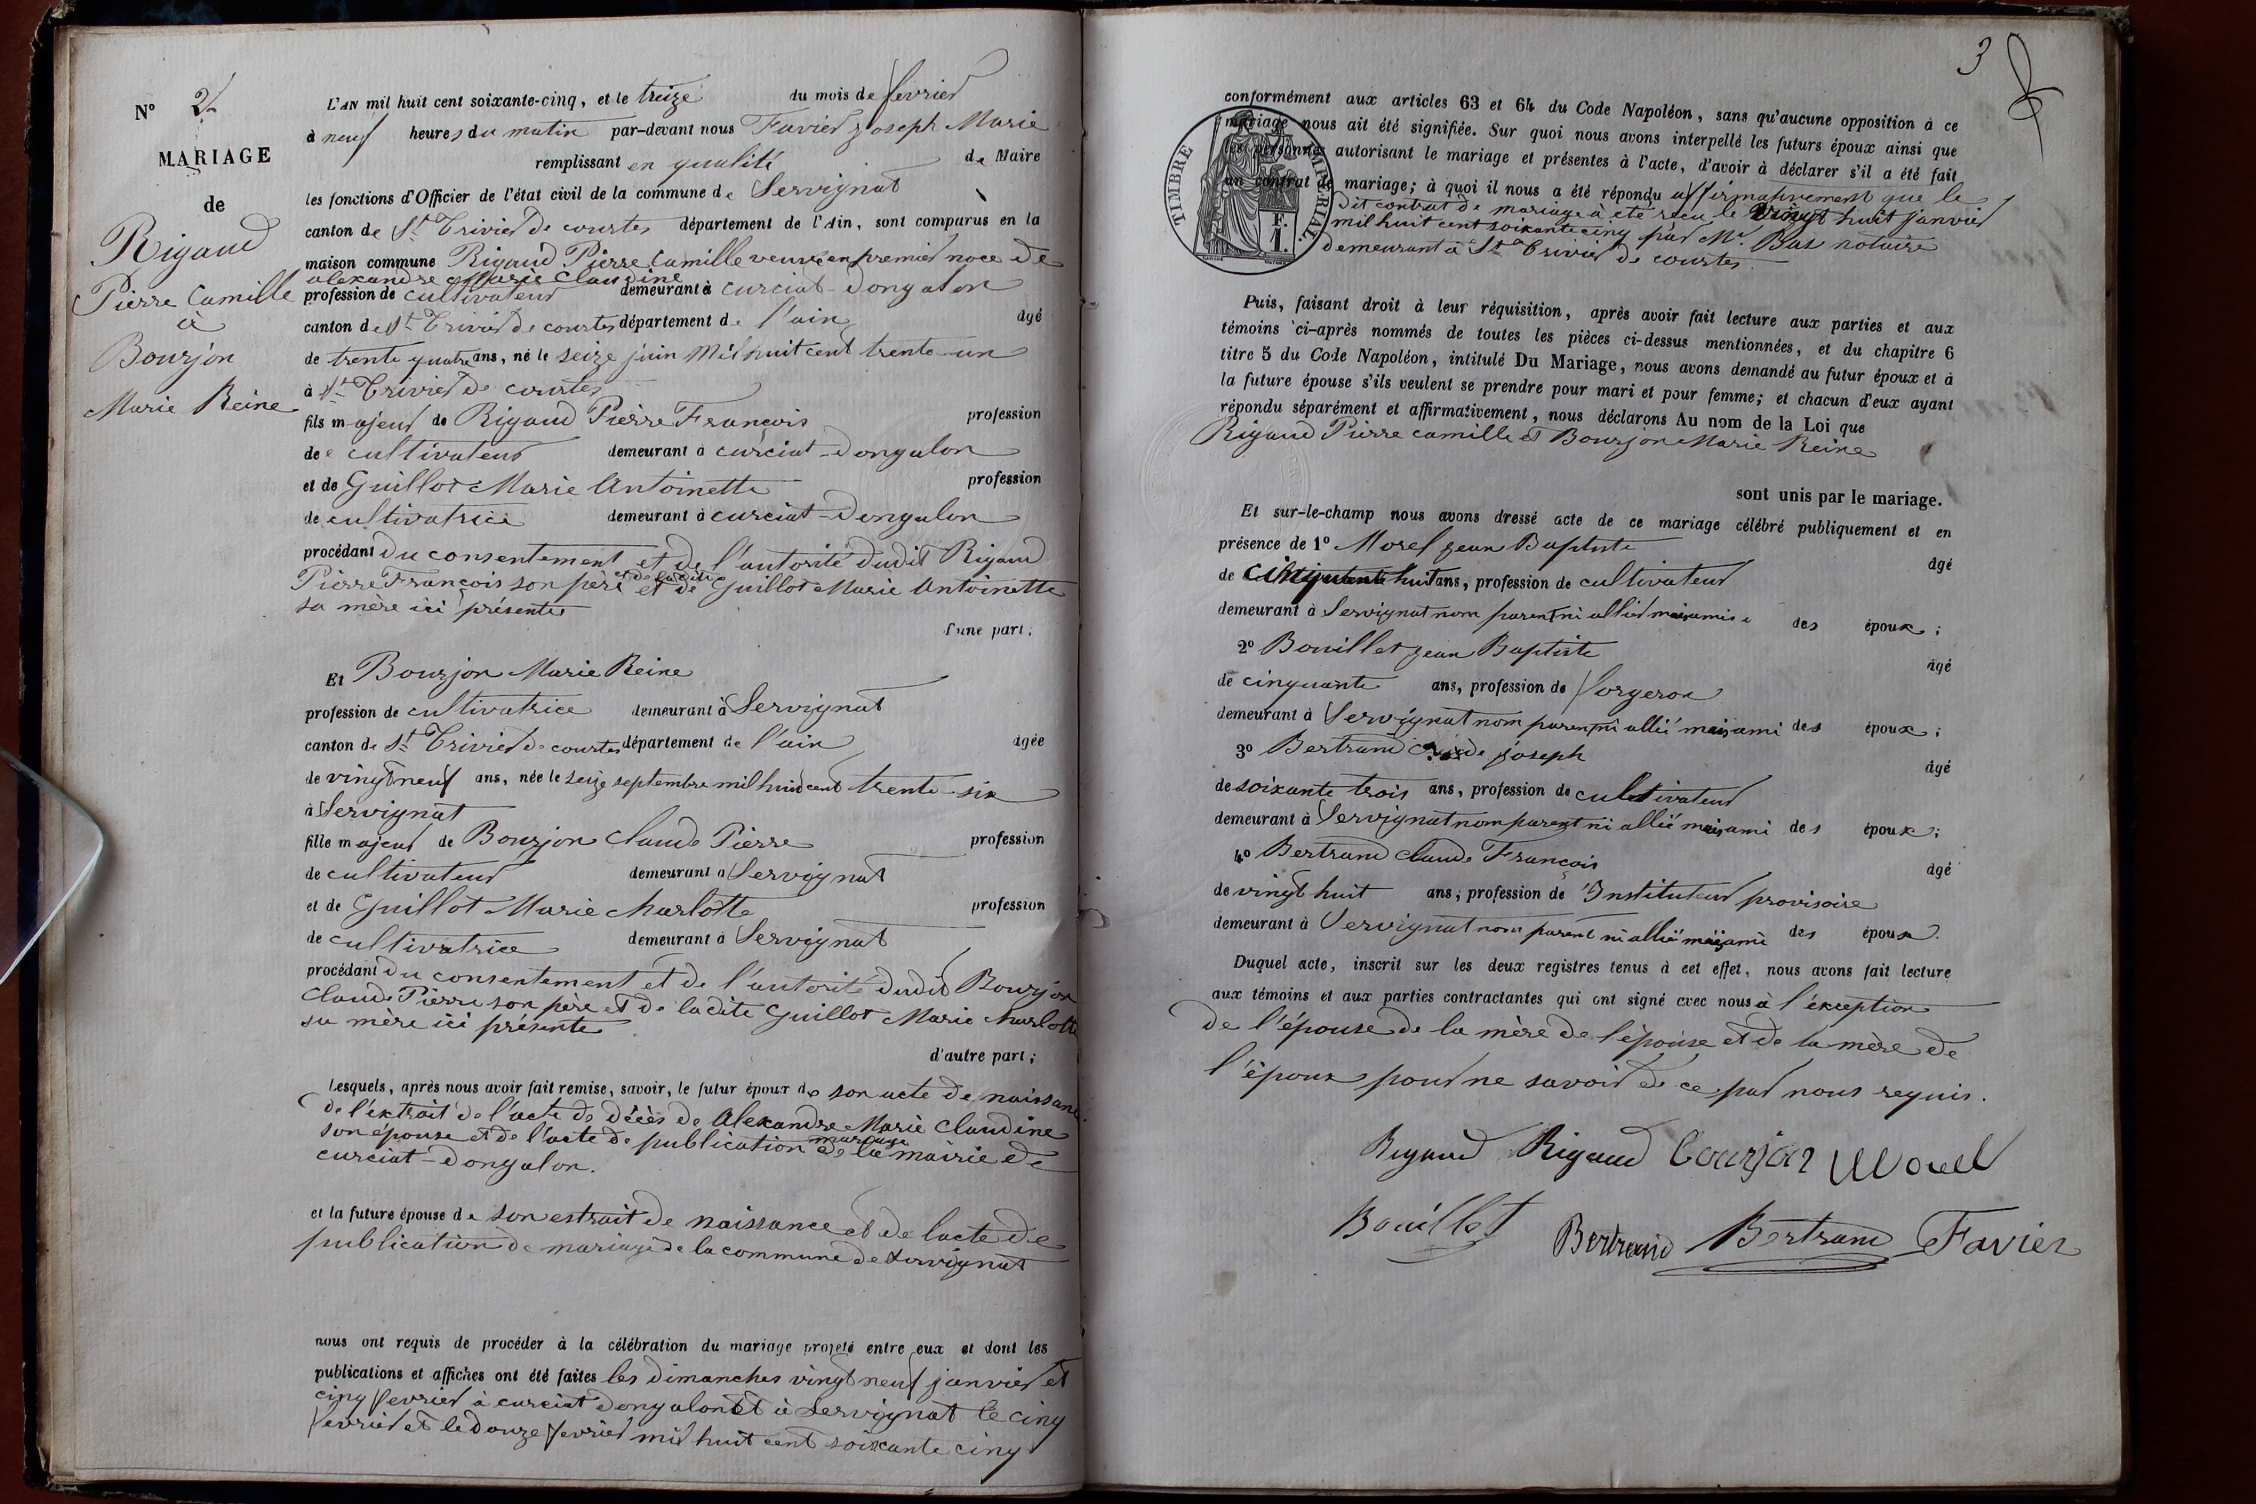 N° 2
MARIAGE
de
Rigaud
Pierre Camille
à
Bourjon
Marie Reine
L'AN mil huit cent soixante-cinq, et le treize du mois de fevrier
à neuf heures du matin par-devant nous Favier Joseph Marie
remplissant en qualité de Maire
les fonctions d'Officier de l'état civil de la commune de Servignat
canton de St Trivier de courtes département de l'Ain, sont comparus en la
maison commune Rigaud Pierre Camille veuve en premier noce de
alexandre Marie Claudine
profession de cultivateur demeurant à curciat-dongalon
canton de St Trivier de courtes département de l'ain âgé
de trente quatre ans, né le seize juin Mil huit cent trente-un
à St Trivier de courtes
fils majeur de Rigaud Pierre François profession
de cultivateur demeurant à curciat-dongalon
et de Guillot Marie Antoinette profession
de cultivatrice demeurant à curciat-dongalon
procédant du consentement et de l'autorité dudit Rigaud
Pierre François son père et de ladite et de Guillot Marie Antoinette
sa mère ici présente
d'une part;
Et Bourjon Marie Reine
profession de cultivatrice demeurant à Servignat
canton de St Trivier de courtes département de l'ain âgée
de vingt neuf ans, née le seize septembre mil huit cent trente-six
à Servignat
fille majeur de Bourjon Claude Pierre profession
de cultivateur demeurant à Servignat
et de Guillot Marie Charlotte profession
de cultivatrice demeurant à Servignat
procédant du consentement et de l'autorité dudit Bourjon
Claude Pierre son père et de ladite Guillot Marie Charlotte
sa mère ici présente
d'autre part;
Lesquels, après nous avoir fait remise, savoir, le futur époux de son acte de naissance
de l'extrait de l'acte de décès de Alexandre Marie Claudine
son épouse et de l'acte de publication mariage de la mairie de
curciat-dongalon.
et la future épouse de son estrait de naissance et de l'acte de
publication de mariage de la commune de servignat
nous ont requis de procéder à la célébration du mariage projeté entre eux et dont les
publications et affiches ont été faites les dimanches vingt neuf janvier et
cinq fevrier à curciat dongalon et à Servignat le cinq
fevrier et le douze fevrier mil huit cent soixante cinq
3
conformément aux articles 63 et 64 du Code Napoléon, sans qu'aucune opposition à ce
mariage nous ait été signifiée. Sur quoi nous avons interpellé les futurs époux ainsi que
les personnes autorisant le mariage et présentes à l'acte, d'avoir à déclarer s'il a été fait
un contrat de mariage; à quoi il nous a été répondu affirmativement que le
dit contrat de mariage à eté reçu le vingt huit janvier
mil huit cent soixante cinq par Me Bas notaire
demeurant à St Trivier de courtes
TIMBRE IMPÉRIAL
1 F.
Puis, faisant droit à leur réquisition, après avoir fait lecture aux parties et aux
témoins ci-après nommés de toutes les pièces ci-dessus mentionnées, et du chapitre 6
titre 5 du Code Napoléon, intitulé Du Mariage, nous avons demandé au futur époux et à
la future épouse s'ils veulent se prendre pour mari et pour femme; et chacun d'eux ayant
répondu séparément et affirmativement, nous déclarons Au nom de la Loi que
Rigaud Pierre camille et Bourjon Marie Reine
sont unis par le mariage.
Et sur-le-champ nous avons dressé acte de ce mariage célébré publiquement et en
présence de 1° Morel Jean Baptiste âgé
de cinquante huit ans, profession de cultivateur
demeurant à Servignat nom parent ni allier mais ami des époux;
2° Bouillet Jean Baptiste âgé
de cinquante ans, profession de forgeron
demeurant à Servignat nom parent ni allié mais ami des époux;
3° Bertrand joseph âgé
de soixante trois ans, profession de cultivateur
demeurant à Servignat nom parent ni allié mais ami des époux;
4° Bertrand Claude François âgé
de vingt huit ans, profession de Instituteur provisoire
demeurant à Servignat nom parent ni allié mais ami des époux.
Duquel acte, inscrit sur les deux registres tenus à cet effet, nous avons fait lecture
aux témoins et aux parties contractantes qui ont signé avec nous à l'éxception
de l'épouse de la mère de l'épouse et de la mère de
l'époux pour ne savoir de ce par nous requis.
Rigaud Rigaud Bourjon Morel
Bouillet Bertrand Bertrand Favier